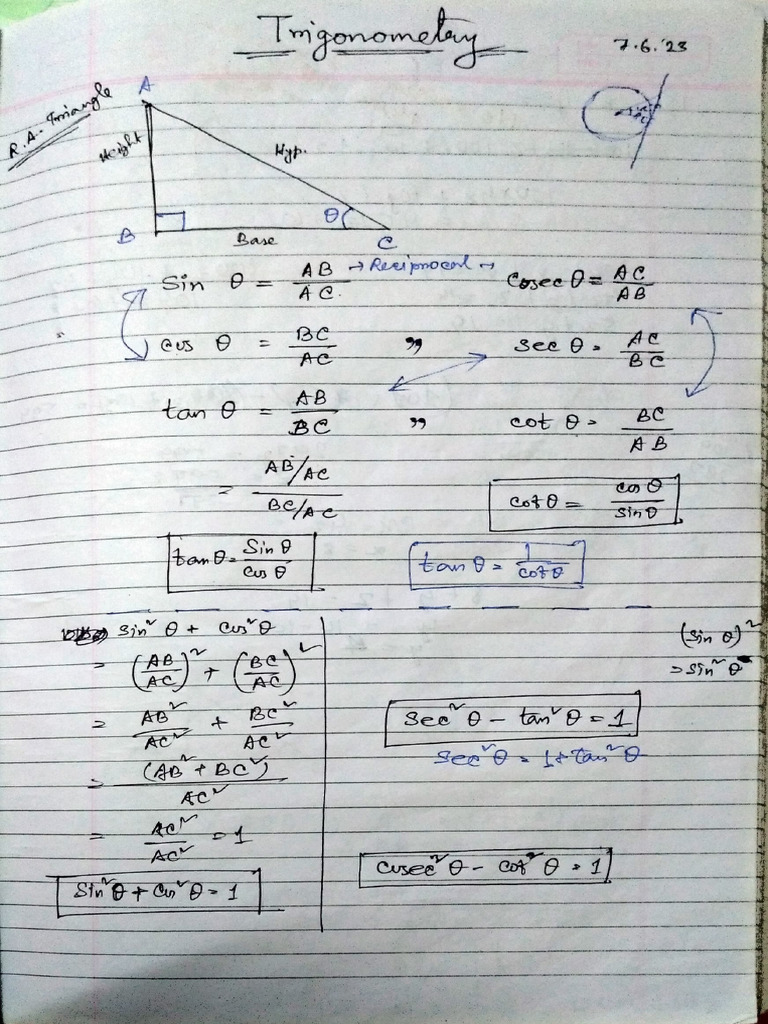 Trigonometry
7.6.'23
R.A. Triangle
A
Height
Hyp.
θ
B
Base
C
Sin θ = AB/AC → Reciprocal → Cosec θ = AC/AB
cos θ = BC/AC ,, sec θ = AC/BC
tan θ = AB/BC ,, cot θ = BC/AB
= (AB/AC)/(BC/AC)
cot θ = cos θ/sin θ
tan θ = Sin θ/cos θ
tan θ = 1/cot θ
sin² θ + cos² θ
(sin θ)²
= sin² θ
= (AB/AC)² + (BC/AC)²
= AB²/AC² + BC²/AC²
= (AB² + BC²)/AC²
= AC²/AC² = 1
Sin² θ + cos² θ = 1
Sec² θ - tan² θ = 1
sec² θ = 1 + tan² θ
cosec² θ - cot² θ = 1